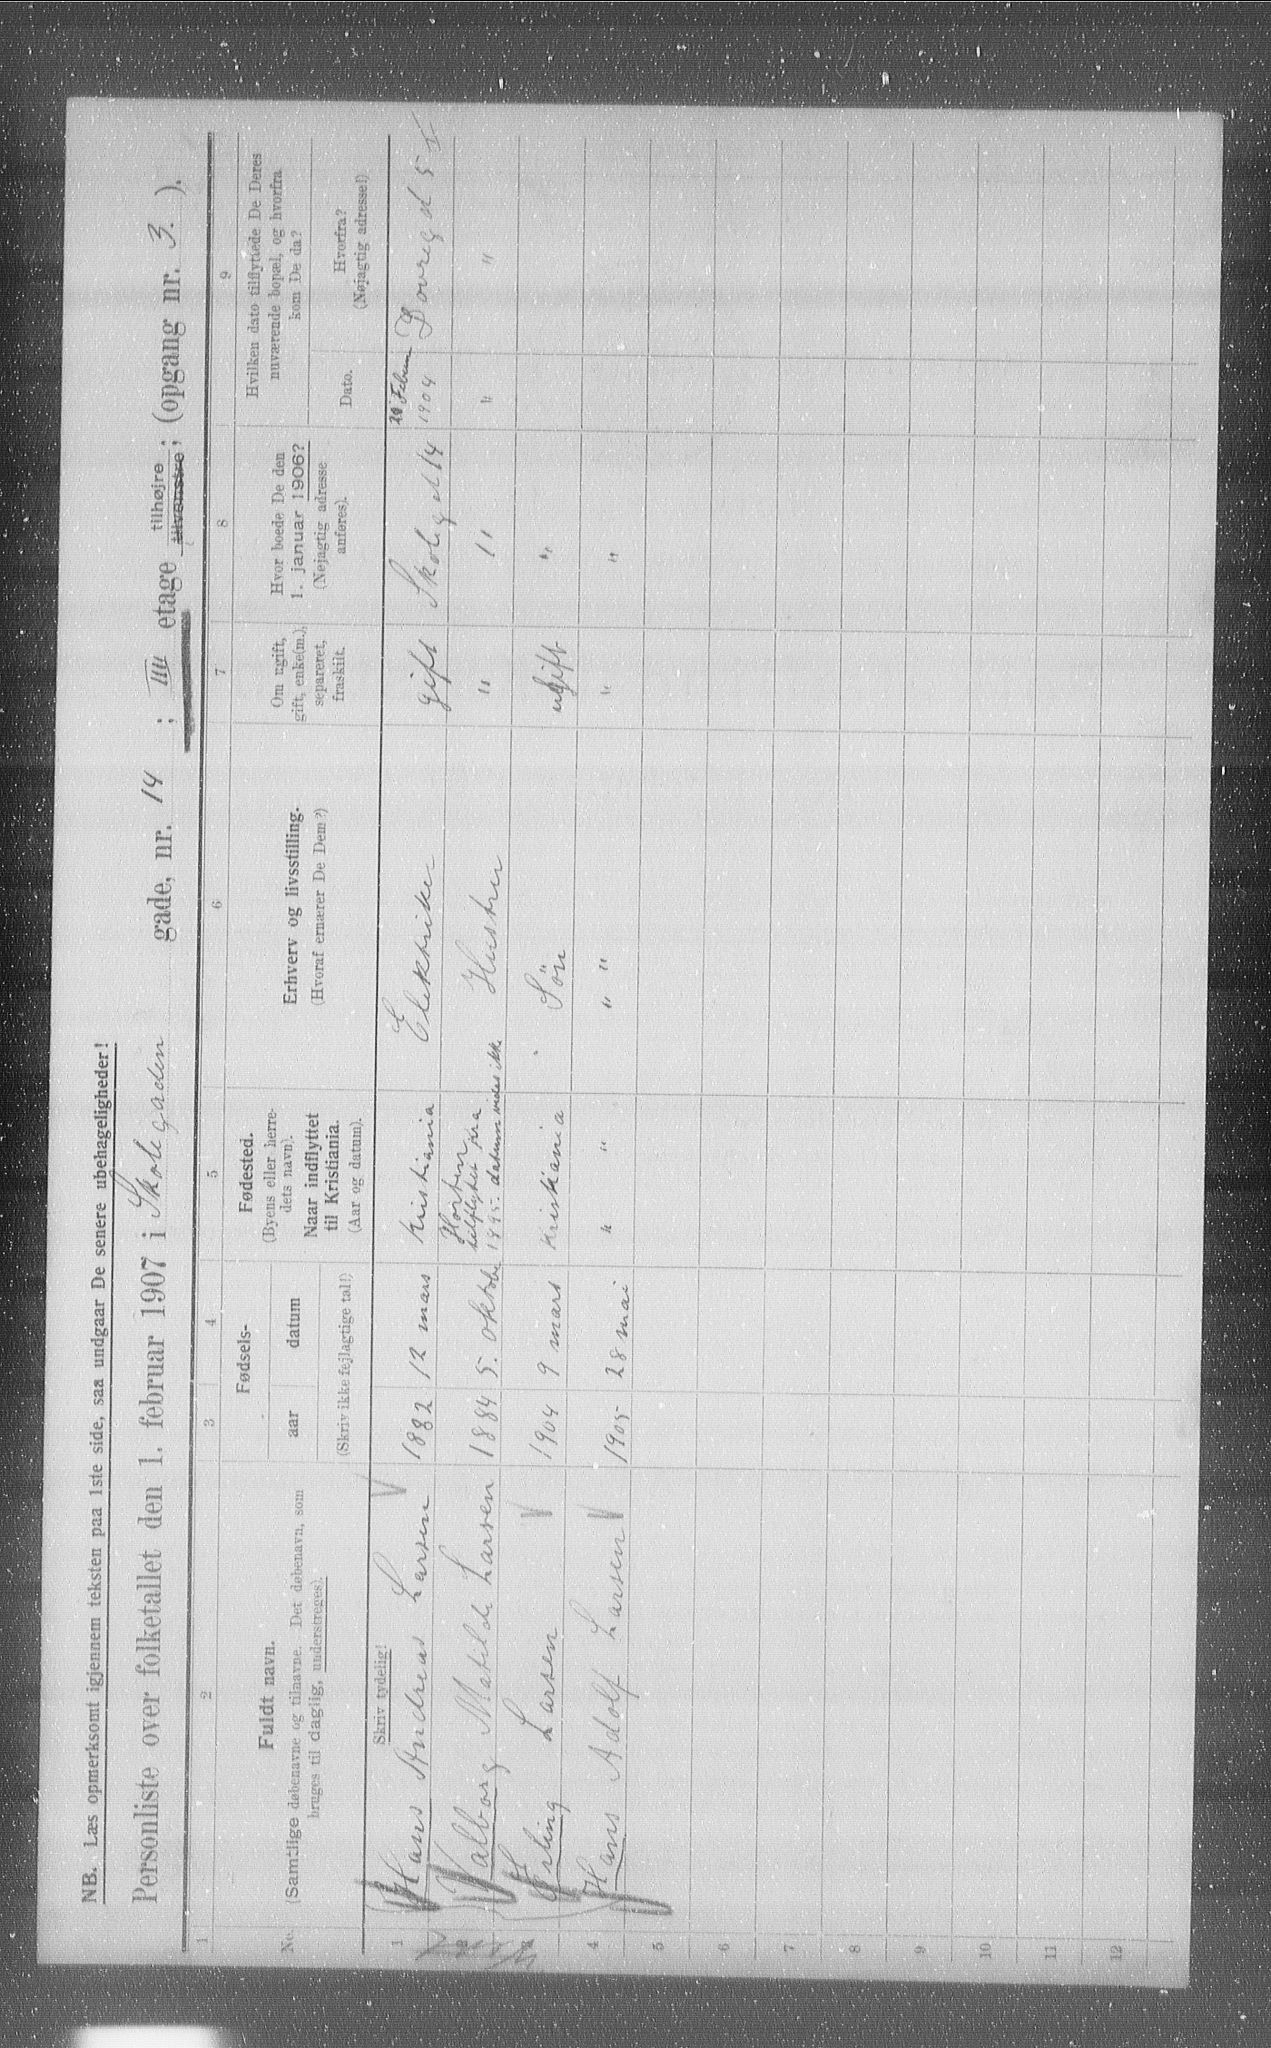 NB. Læs opmerksomt igjennem teksten paa 1ste side, saa undgaar De senere ubehageligheder!
Personliste over folketallet den 1. februar 1907 i Skolegaden gade, nr. 14 ; IIII etage tilhøjre tilvenstre ; (opgang nr. 3. ).
1 2 3 4 5 6 7 8 9
No.
Fuldt navn.
(Samtlige døbenavne og tilnavne. Det døbenavn, som
bruges til daglig, understreges).
Skriv tydelig!
Fødsels-
aar datum
(Skriv ikke fejlagtige tal!)
Fødested.
(Byens eller herre-
dets navn).
Naar indflyttet
til Kristiania.
(Aar og datum).
Erhverv og livsstilling.
(Hvoraf ernærer De Dem?)
Om ugift,
gift, enke(m.),
separeret,
fraskilt.
Hvor boede De den
1. januar 1906?
(Nøjagtig adresse
anføres).
Hvilken dato tilflyttede De Deres
nuværende bopæl, og hvorfra
kom De da?
Dato.
Hvorfra?
(Nøjagtig adresse!)
1 Hans Andreas Larsen 1882 12 mars Kristiania Elektriker gift Skoleg d 14 1904 5
2 Valborg Matilde Larsen 1884 5. oktobe Horten 1895. datum vides ikke Hustru " " " "
3 Erling Larsen 1904 9 mars Kristiania Sön ugift "
4 Hans Adolf Larsen 1905 28 mai " " " " " "
5
6
7
8
9
10
11
12